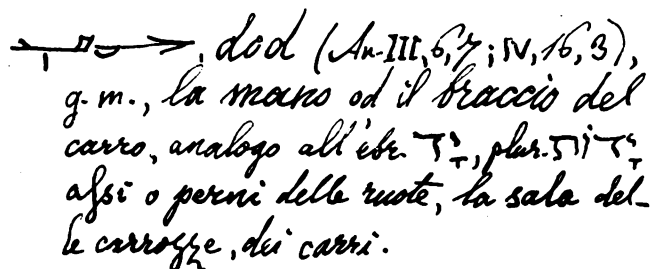 , dod (An-III, 6, 7; IV, 16, 3),
g. m., la mano od il braccio del
carro, analogo all'ebr. יָד, plur. ידות
assi o perni delle ruote, la sala del-
le carrozze, dei carri.